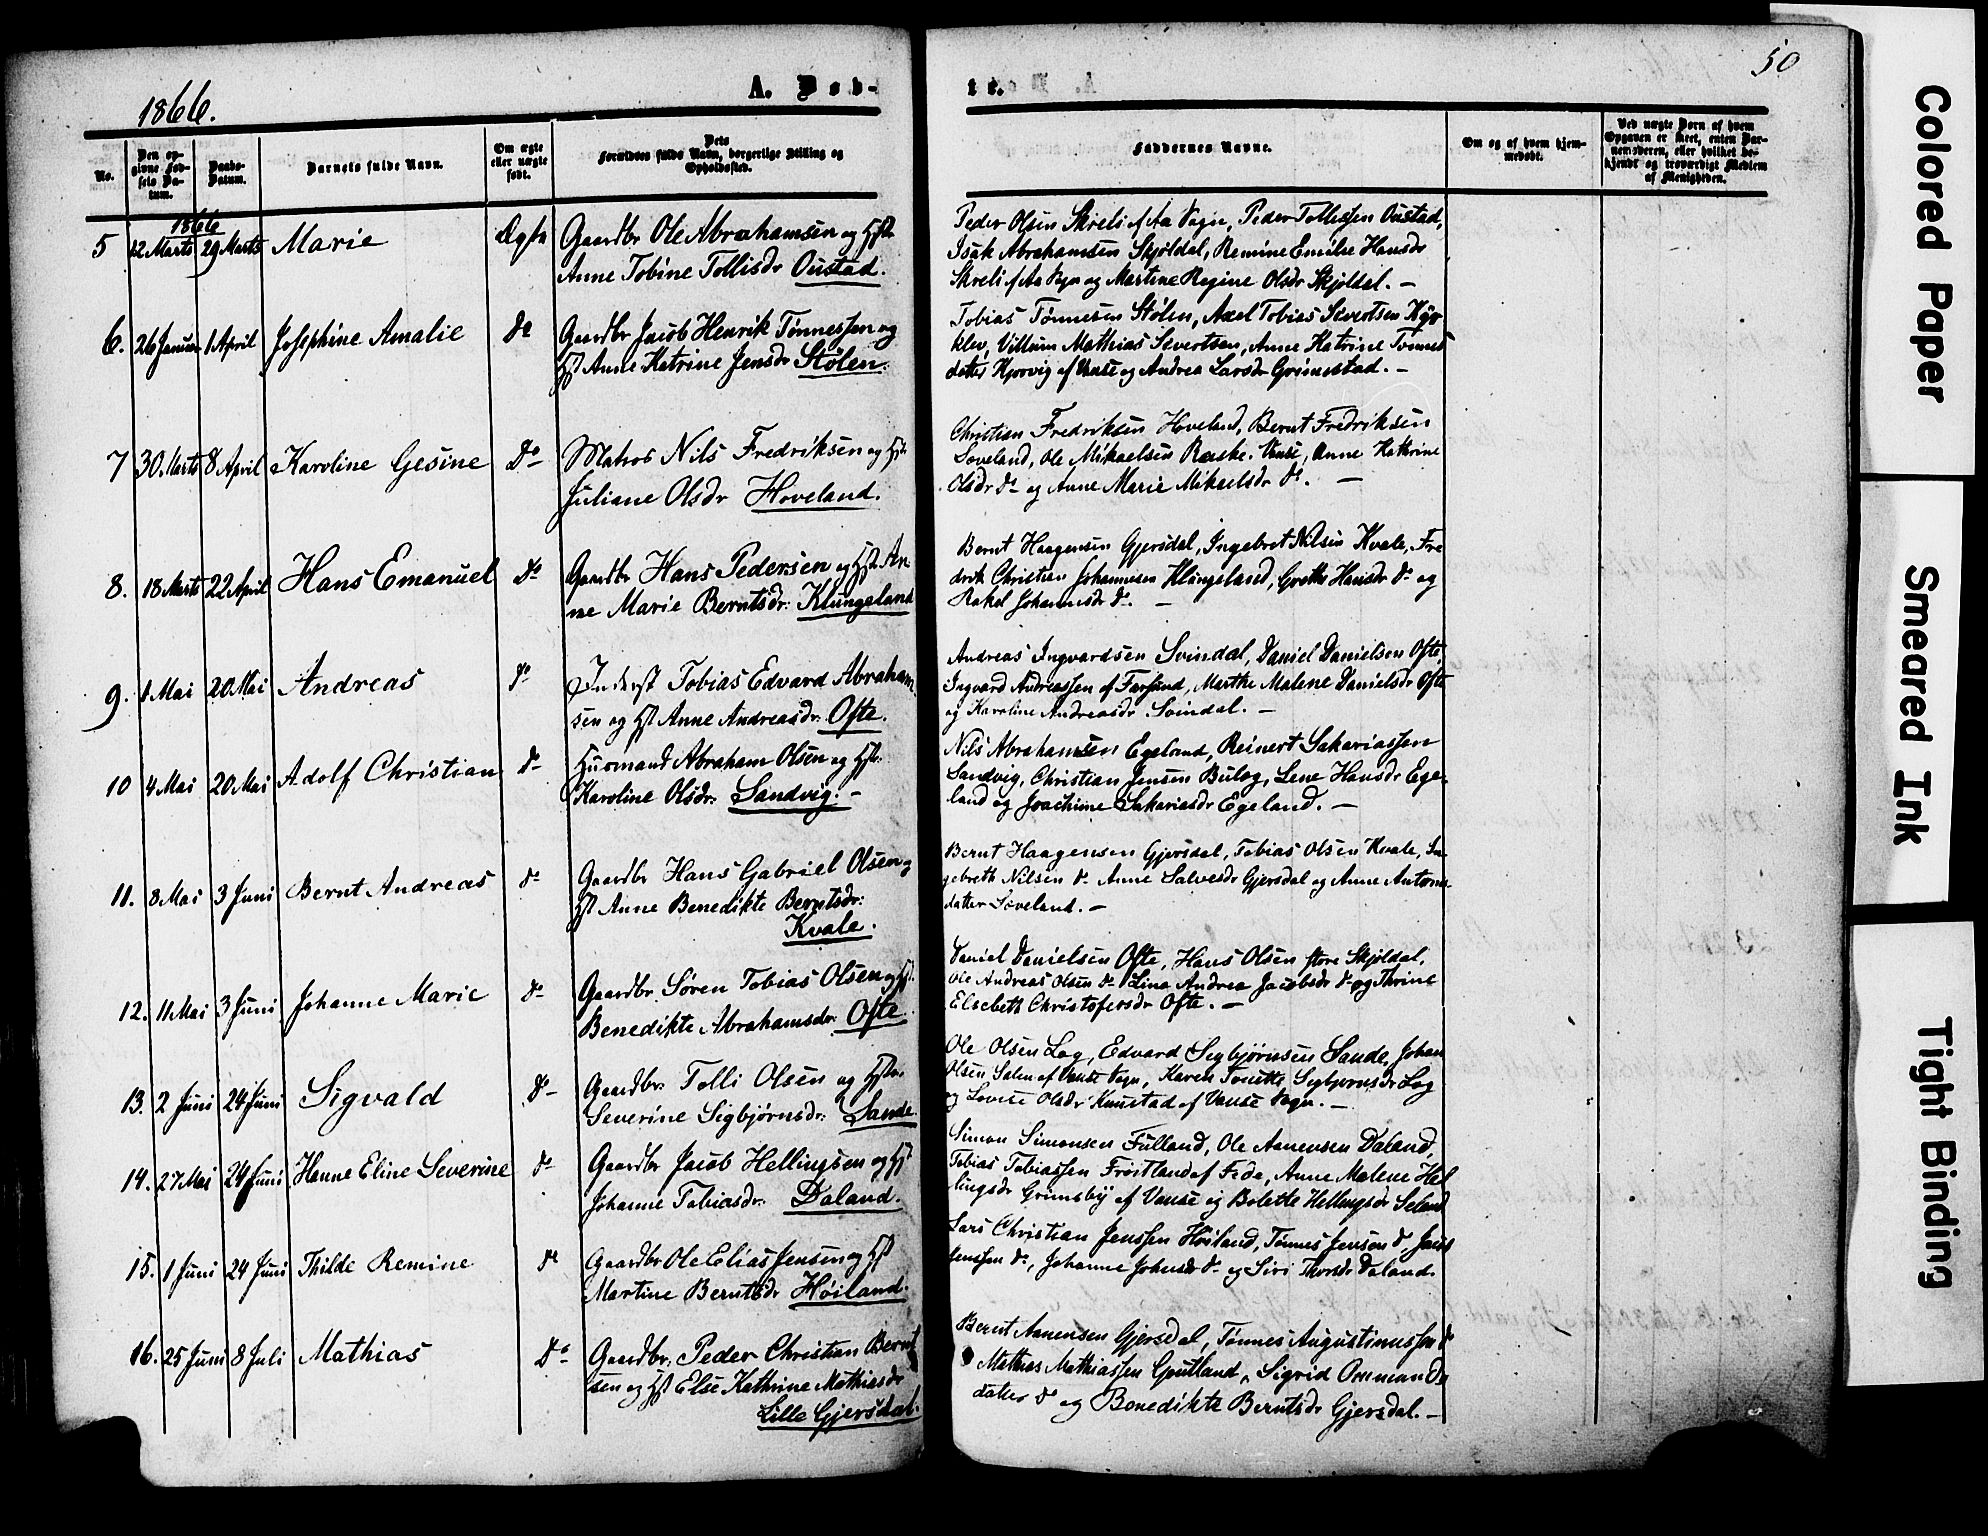 1866.
A. Døb-
No.
Den op-
givne Fød-
sels Da-
tum.
Daabs-
Datum.
Barnets fulde Navn.
Om ægte
eller uægte
født.
Dets
Forældres fulde Navn, borgerlige Stilling og
Opholdssted.
1866
5 12 Marts 29 Marts Marie Ægte Gaardbr Ole Abrahamsen og Hst.
Anne Tobine Tollisdr Oustad.
6. 26 Januar 1 April Josephine Amalie do Gaardbr Jacob Henrik Tønnessen og
Hst Anne Katrine Jensdr Stølen.
7 30. Marts 8 April Karoline Gesine Do Matros Nils Fredriksen og Hst.
Juliane Olsdr Hoveland.
8. 18 Marts 22 April Hans Emanuel Do Gaardbr Hans Pedersen og Hst. An-
ne Marie Berntsdr: Klungeland
9. 1 Mai 20 Mai Andreas do Inderst Tobias Edvard Abraham-
sen og Hst Anne Andreasdr. Ofte.
10 4 Mai 20 Mai Adolf Christian do Husmand Abraham Olsen og Hst.
Karoline Olsdr: Sandvig. -
11. 8 Mai 3 Juni Bernt Andreas do Gaardbr Hans Gabriel Olsen og
Hst Anne Benedikte Berntsdr:
Kvale.
12. 11 Mai 3 Juni Johanne Marie do Gaardbr Søren Tobias Olsen og Hst.
Benedikte Abrahamsdr: Ofte.
13. 2 Juni 24 Juni Sigvald do Gaardbr: Tolli Olsen og Hst.
Severine Sigbjørnsdr: Sande
14. 27 Mai 24 Juni Hanne Eline Severine do Gaardbr Jacob Hellingsen og Hst
Johanne Tobiasdr: Daland.
15. 1 Juni 24 Juni Thilde Remine do Gaardbr Ole Elias Jensen og Hst
Martine Berntsdr Høiland.
16. 25 Juni 8 Juli Mathias Do Gaardbr: Peder Christian Bernt-
sen og Hst Else Kathrine Mathiasdr
Lille Gjersdal.
50
te.
Faddernes Navne.
Om og af hvem hjem-
medøbt.
Ved uægte Børn af hvem
Opgaven er skeet, enten Bar-
nemoderen, eller hvilket be-
kjendt og troværdigt Medlem
af Menigheden.
Peder Olsen Skreli af Aa Sogn, Peder Tollessen Oustad,
Isak Abrahamsen Skjøldal, Remine Emilie Hansdr
Skreli af Aa Sogn og Martine Regine Olsdr Skjøldal. -
Tobias Tønnesen Stølen, Axel Tobias Sivertsen
Villum Mathias Sivertsen, Anne Katrine Tønnes-
datter Kjørvig af Vanse og Andrea Larsdr Grimestad. -
Christian Fredriksen Hoveland, Bernt Fredriksen
Loveland, Ole Mikaelsen Ræske, Vanse, Anne Kathrine
Olsdr do og Anne Marie Mikaelsdr do. -
Bernt Haagensen Gjersdal, Ingebret Nilsen Kvale, Fre-
drik Christian Johannesen Klungeland, Grethe Hansdr do og
Rakel Johannsdr do. -
Andreas Ingvardsen Svindal, Daniel Danielsen Ofte,
Ingvard Andreassen af Farsund, Marthe Malene Danielsdr Ofte
og Karoline Andreasdr Svindal. -
Nils Abrahamsen Egeland, Reinert Sakariassen
Sandvig, Christian Jensen Buløg, Lene Hansdr Ege-
land og Joachime Sakariasdr Egeland. -
Bernt Haagensen Gjersdal, Tobias Olsen Kvale, In-
gebreth Nilsen do Anne Salvesdr Gjersdal og Anne Antons-
datter Loveland. -
Daniel Danielsen Ofte, Hans Olsen store Skjøldal,
Ole Andreas Olsen do Lina Andrea Jacobsdr do og Thrine
Elsebeth Christofersdr Ofte. -
Ole Olsen Log, Edvard Sigbjørnsen Sande, Johan
Olsen Salen af Vanse Sogn, Karen Tonette Sigbjørnsdr Log
og Lovise Olsdr Kunstad af Vanse Sogn. -
Simon Simonsen Fulland, Ole Aanensen Daland,
Tobias Tobiassen Frøitland af Fede, Anne Malene Hel-
lingsdr Grimsby af Vanse og Bolette Hellingsdr Seland
Lars Christian Jenssen Høiland, Tønnes Jensen do Jacob
Jenssen do, Johanne Johnsdr do og Siri Thorsdr Daland.
Bernt Aanensen Gjersdal, Tønnes Augustinussen do
Mathias Mathiassen Gouland, Sigrid Ommunds-
datter do og Benedikte Berntsdr Gjersdal. -
Colored Paper
Smeared Ink
Tight Binding